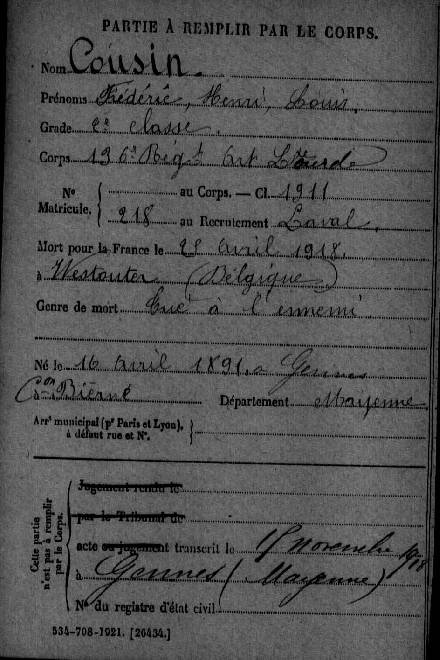 PARTIE À REMPLIR PAR LE CORPS.
Nom Cousin.
Prénoms Frédéric, Henri, Louis,
Grade 2e classe.
Corps 136e Régt Art Lourde
N° Matricule. { au Corps. — Cl. 1911
218 au Recrutement Laval.
Mort pour la France le 28 avril 1918.
à Westouter (Belgique)
Genre de mort Tué à l'ennemi
Né le 16 avril 1891 à Gennes
Con Bierné Département Mayenne
Arrt municipal (pr Paris et Lyon), à défaut rue et N°. }
Cette partie n'est pas à remplir par le Corps. {
Jugement rendu le
par le Tribunal de
acte ou jugement transcrit le novembre 1918
à Gennes (Mayenne)
N° du registre d'état civil
534-708-1921. [26434.]